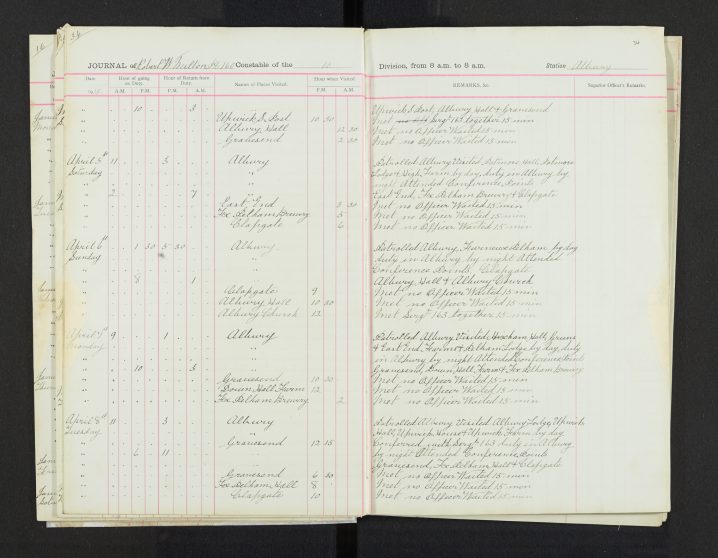 36
JOURNAL of Robert W Fulton Pc 160 Constable of the 10 Division, from 8 a.m. to 8 a.m. Station Albury
Date Hour of going on Duty. Hour of Return from Duty. Names of Places Visited. Hour when Visited REMARKS, &c. Superior Officer's Remarks.
A.M. P.M. P.M. A.M. P.M. A.M.
10 3 Upwick G. Post, Albury Hall & Gravesend
Upwick G. Post 10 30 Met Sergt 163 together 15 min
Albury Hall 12 30 Met no Officer Waited 15 min
Gravesend 2 30 Met no Officer Waited 15 min
April 5th 11 3 Albury Patrolled Albury Visited
Saturday Farm by day, duty in Albury by
night Attended Conference Points
2 7 East End, Fox Pelham Brewery & Clapgate
East End 3 30 Met no Officer Waited 15 min
Fox Pelham Brewery 5 Met no Officer Waited 15 min
Clapgate 6 Met no Officer Waited 15 min
April 6th 1 30 5 30 Albury Patrolled Albury, Furneux Pelham by day
Sunday duty in Albury by night Attended
Conference Points, Clapgate
8 1 Albury Hall & Albury Church
Clapgate 9 Met no Officer Waited 15 min
Albury Hall 10 30 Met no Officer Waited 15 min
Albury Church 12 Met Sergt 163 together 15 min
April 7th 9 1 Albury Patrolled Albury Visited Hall,
Monday & East End, & Pelham Lodge by day, duty
in Albury by night Attended Conference Points
10 3 Gravesend, Down Hall Farm & Fox Pelham Brewery
Gravesend 10 30 Met no Officer Waited 15 min
Down Hall Farm 12 Met no Officer Waited 15 min
Fox Pelham Brewery 2 Met no Officer Waited 15 min
April 8th 11 3 Albury Patrolled Albury Visited Albury Lodge, Upwick
Tuesday Hall, Upwick House & Upwick Farm by day
Gravesend 12 15 Conferred with Sergt 163 duty in Albury
6 11 by night Attended Conference Points
Gravesend, Fox Pelham Hall & Clapgate
Gravesend 6 30 Met no Officer Waited 15 min
Fox Pelham Hall 8 Met no Officer Waited 15 min
Clapgate 10 Met no Officer Waited 15 min